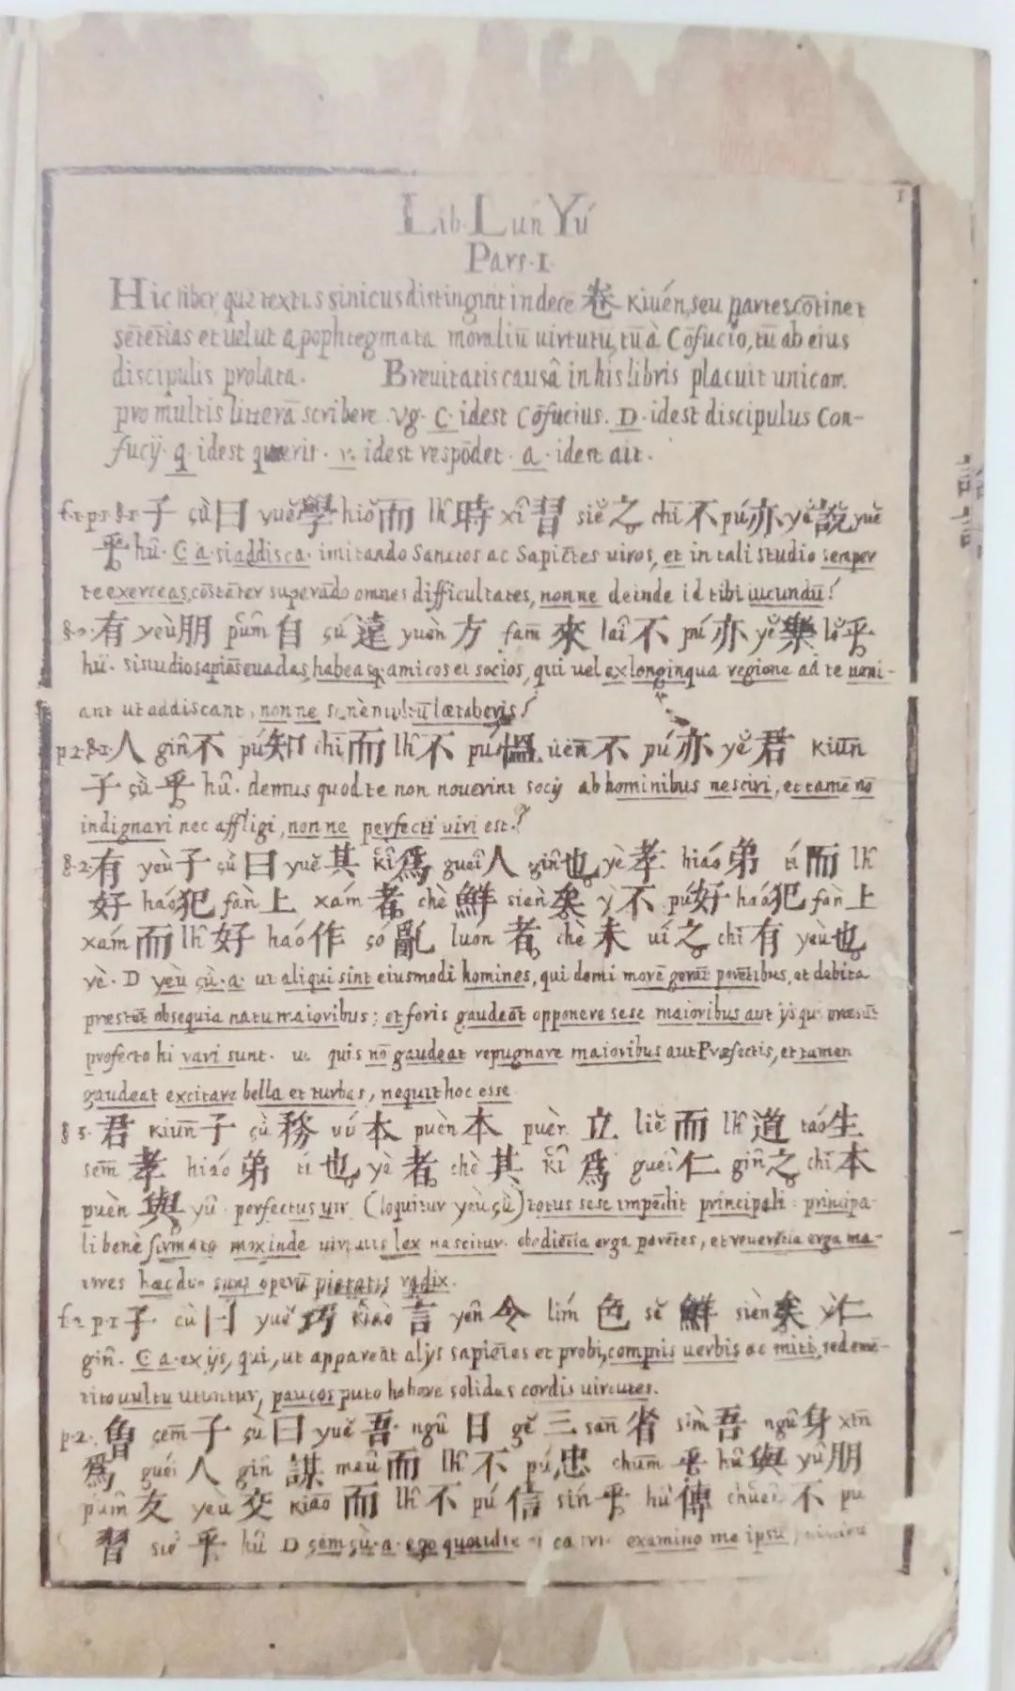 1
Lib. Lún Yú
Pars. 1.
Hic liber, quē textus sinicus distinguit in decē 卷 Kiuén, seu partes, cōtinet
sētētias et velut apophtegmata moraliū virtutū, tū à Cōfucio, tū ab eius
discipulis prolata. Brevitatis causâ in his libris placuit unicam
pro multis litterā scribere. Vg. C. idest Cōfucius. D. idest discipulus Con-
fucÿ. q. idest quærit. r. idest respōdet. a. idest ait.
f.1.p.1.§.1. 子 çù 曰 yuĕ 學 hiŏ 而 lh̑ 時 xî 習 siĕ 之 chī 不 pú 亦 yĕ 說 yuĕ
乎 hû. C. a. si addisca. imitando Sanctos ac Sapiētes viros, et in tali studio semper
te exerceas, cōstāter superādo omnes difficultates, nonne deinde id tibi iucundū?
有 yeù 朋 pûm 自 çú 遠 yuèn 方 fam̄ 來 laî 不 pú 亦 yĕ 樂 lŏ 乎
hû. si studio sapiēs evadas, habeasq; amicos et socios, qui vel ex longinqua regione ad te veni-
ant ut addiscant, nonne lætaberis?
p.2.§.1. 人 gin̂ 不 pú 知 chī 而 lh̑ 不 pú 慍 üén 不 pú 亦 yĕ 君 Kiun̄
子 çù 乎 hû. demus quod te non noverint socÿ ab hominibus nesciri, et tamē nō
indignari nec affligi, nonne perfecti viri est?
§.2. 有 yeù 子 çù 曰 yuĕ 其 kî 為 gueî 人 gin̂ 也 yè 孝 hiáo 弟 tí 而 lh̑
好 háo 犯 fàn 上 xám 者 chè 鮮 sièn 矣 ỳ 不 pú 好 háo 犯 fàn 上
xám 而 lh̑ 好 háo 作 só 亂 luón 者 chè 未 uí 之 chī 有 yeù 也
yè. D yeù çù. a. ut aliqui sint eiusmodi homines, qui domi morē gerāt parētibus, et debita
præstēt obsequia natu maioribus; et foris gaudeāt opponere sese maioribus aut ÿs qui præsūt
profecto hi rari sunt. ut quis nō gaudeat repugnare maioribus aut Præfectis, et tamen
gaudeat excitare bella et turbas, nequit hoc esse
君 Kiun̄ 子 çù 務 vú 本 puèn 本 puèn 立 liĕ 而 lh̑ 道 táo 生
sem̄ 孝 hiáo 弟 tí 也 yè 者 chè 其 kî 為 gueî 仁 gin̂ 之 chī 本
puèn 與 yû. perfectus vir (loquitur yeù çù) totus sese impēdit principali: principa-
li benè firmato mox inde virtutis lex nascitur. obediētia erga parētes, et reverētia erga ma-
iores hæc duo sunt operū pietatis radix.
f.2.p.1. 子 çù 曰 yuĕ 巧 kiào 言 yên 令 lím 色 sĕ 鮮 sièn 矣 ỳ 仁
gin̂. C. a. ex ÿs, qui, ut appareāt alÿs sapiētes et probi, comptis verbis ac miti, sed emē-
tito vultu utuntur, paucos puto habere solidas cordis virtutes.
p.2. 曾 çem̄ 子 çù 曰 yuĕ 吾 ngû 日 gĕ 三 san̄ 省 sìm 吾 ngû 身 xin̄
為 gueí 人 gin̂ 謀 meû 而 lh̑ 不 pú 忠 chum̄ 乎 hû 與 yû 朋
pûm 友 yeù 交 Kiāo 而 lh̑ 不 pú 信 sín 乎 hû 傳 chuên 不 pu
習 siĕ 乎 hû D çem̄ çù. a. ego quotidie examino me ipsū
論
語